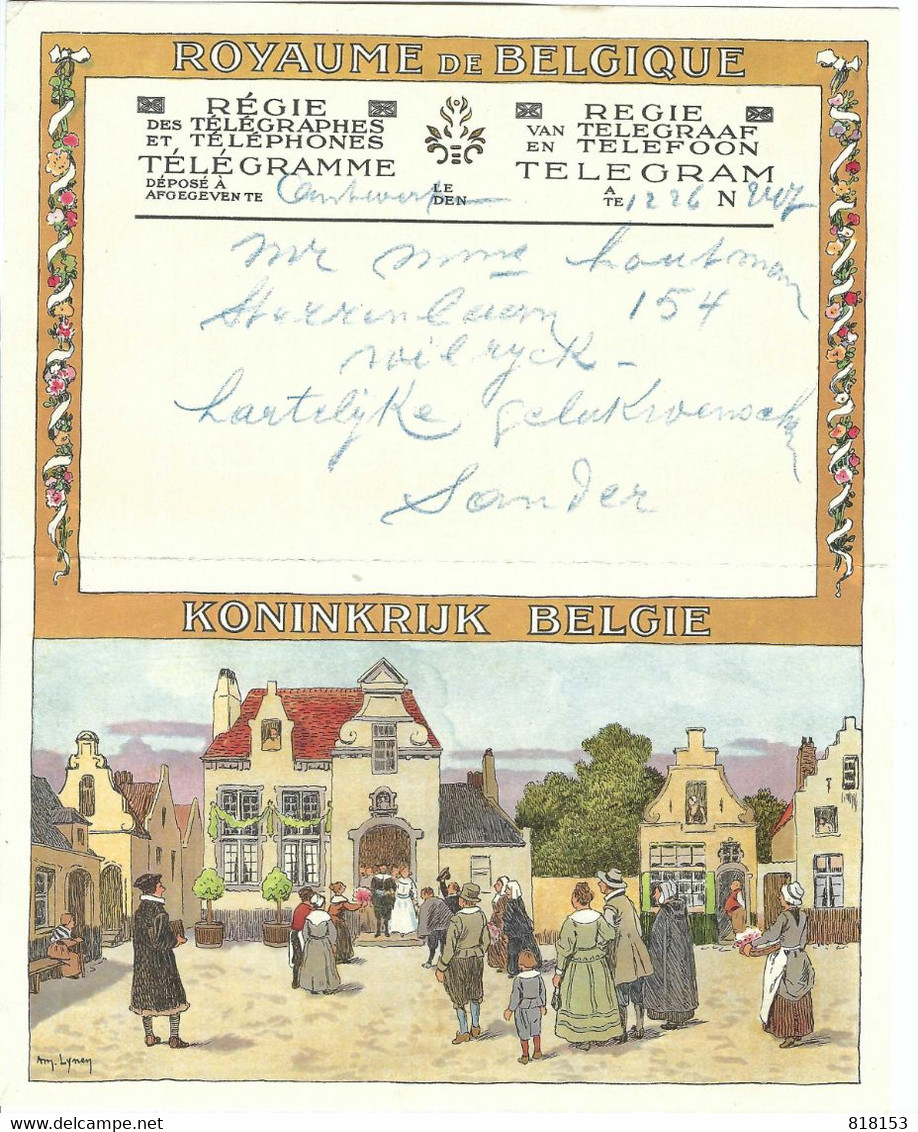 ROYAUME DE BELGIQUE
RÉGIE
DES TÉLÉGRAPHES
ET TÉLÉPHONES
TÉLÉGRAMME
DÉPOSÉ À
AFGEGEVEN TE
LE
DEN
REGIE
VAN TELEGRAAF
EN TELEFOON
TELEGRAM
A
TE 1226 N
Mr Mme Houtman
Sterrenlaan 154
Wilryck -
Hartelijke gelukwenschen
Sander
KONINKRIJK BELGIE
Am. Lynen
818153